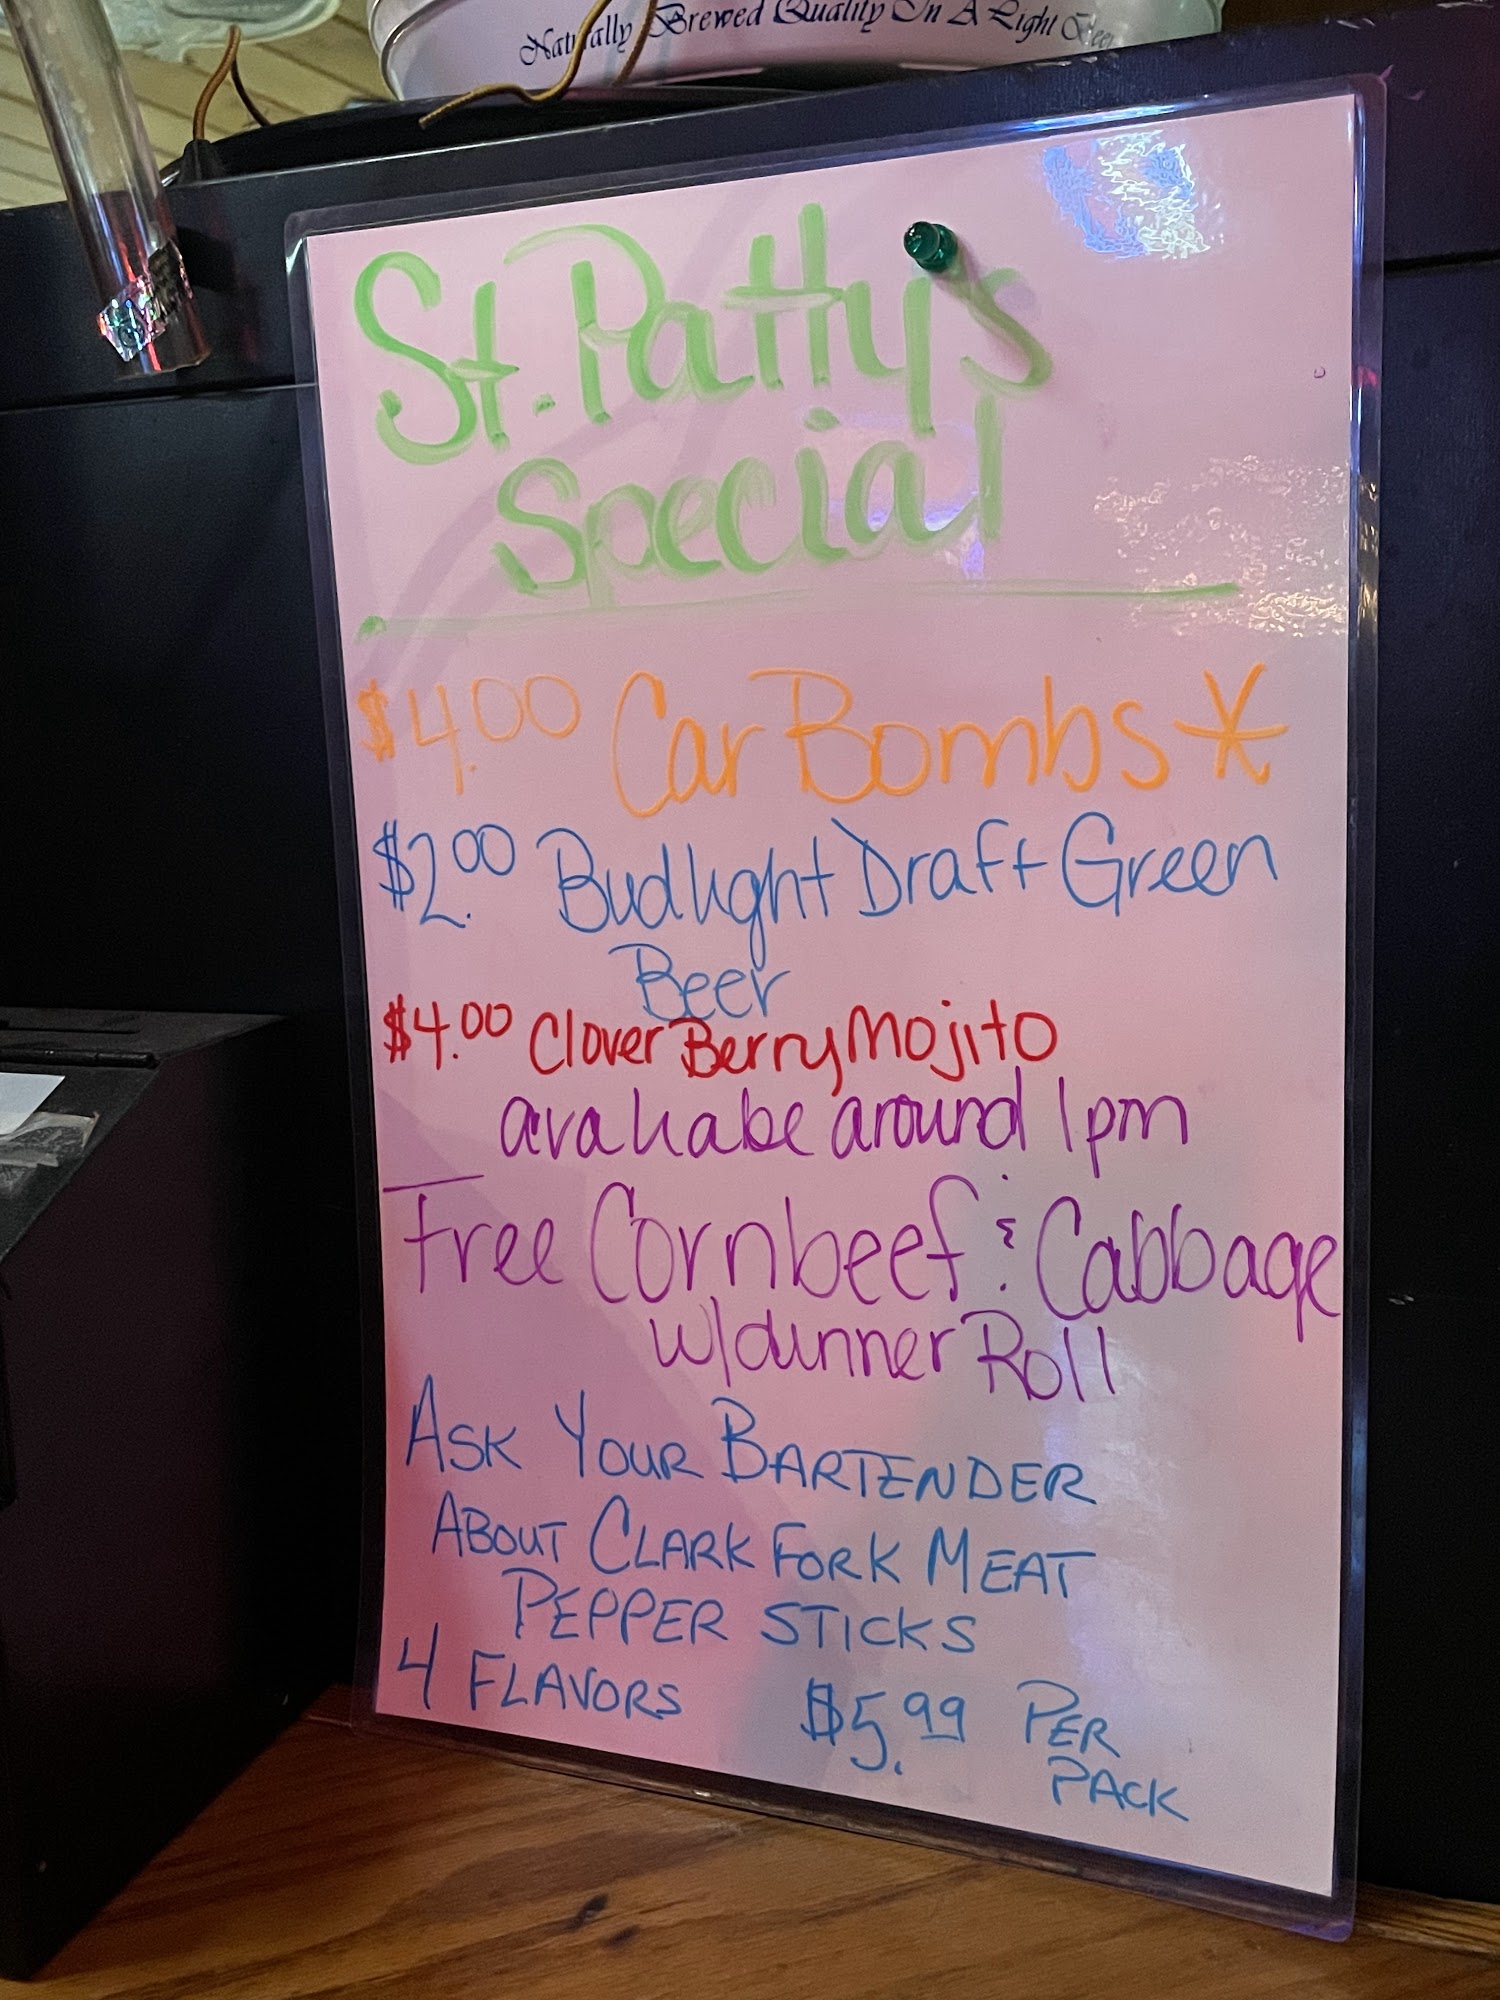 Naturally Brewed Quality In A Light Beer
St. Patty's
Special
$4.00 Car Bombs*
$2.00 Budlight Draft Green
Beer
$4.00 Clover Berry Mojito
availiabe around 1pm
Free Cornbeef & Cabbage
w/dinner Roll
ASK YOUR BARTENDER
ABOUT CLARK FORK MEAT
PEPPER STICKS
4 FLAVORS $5.99 PER
PACK